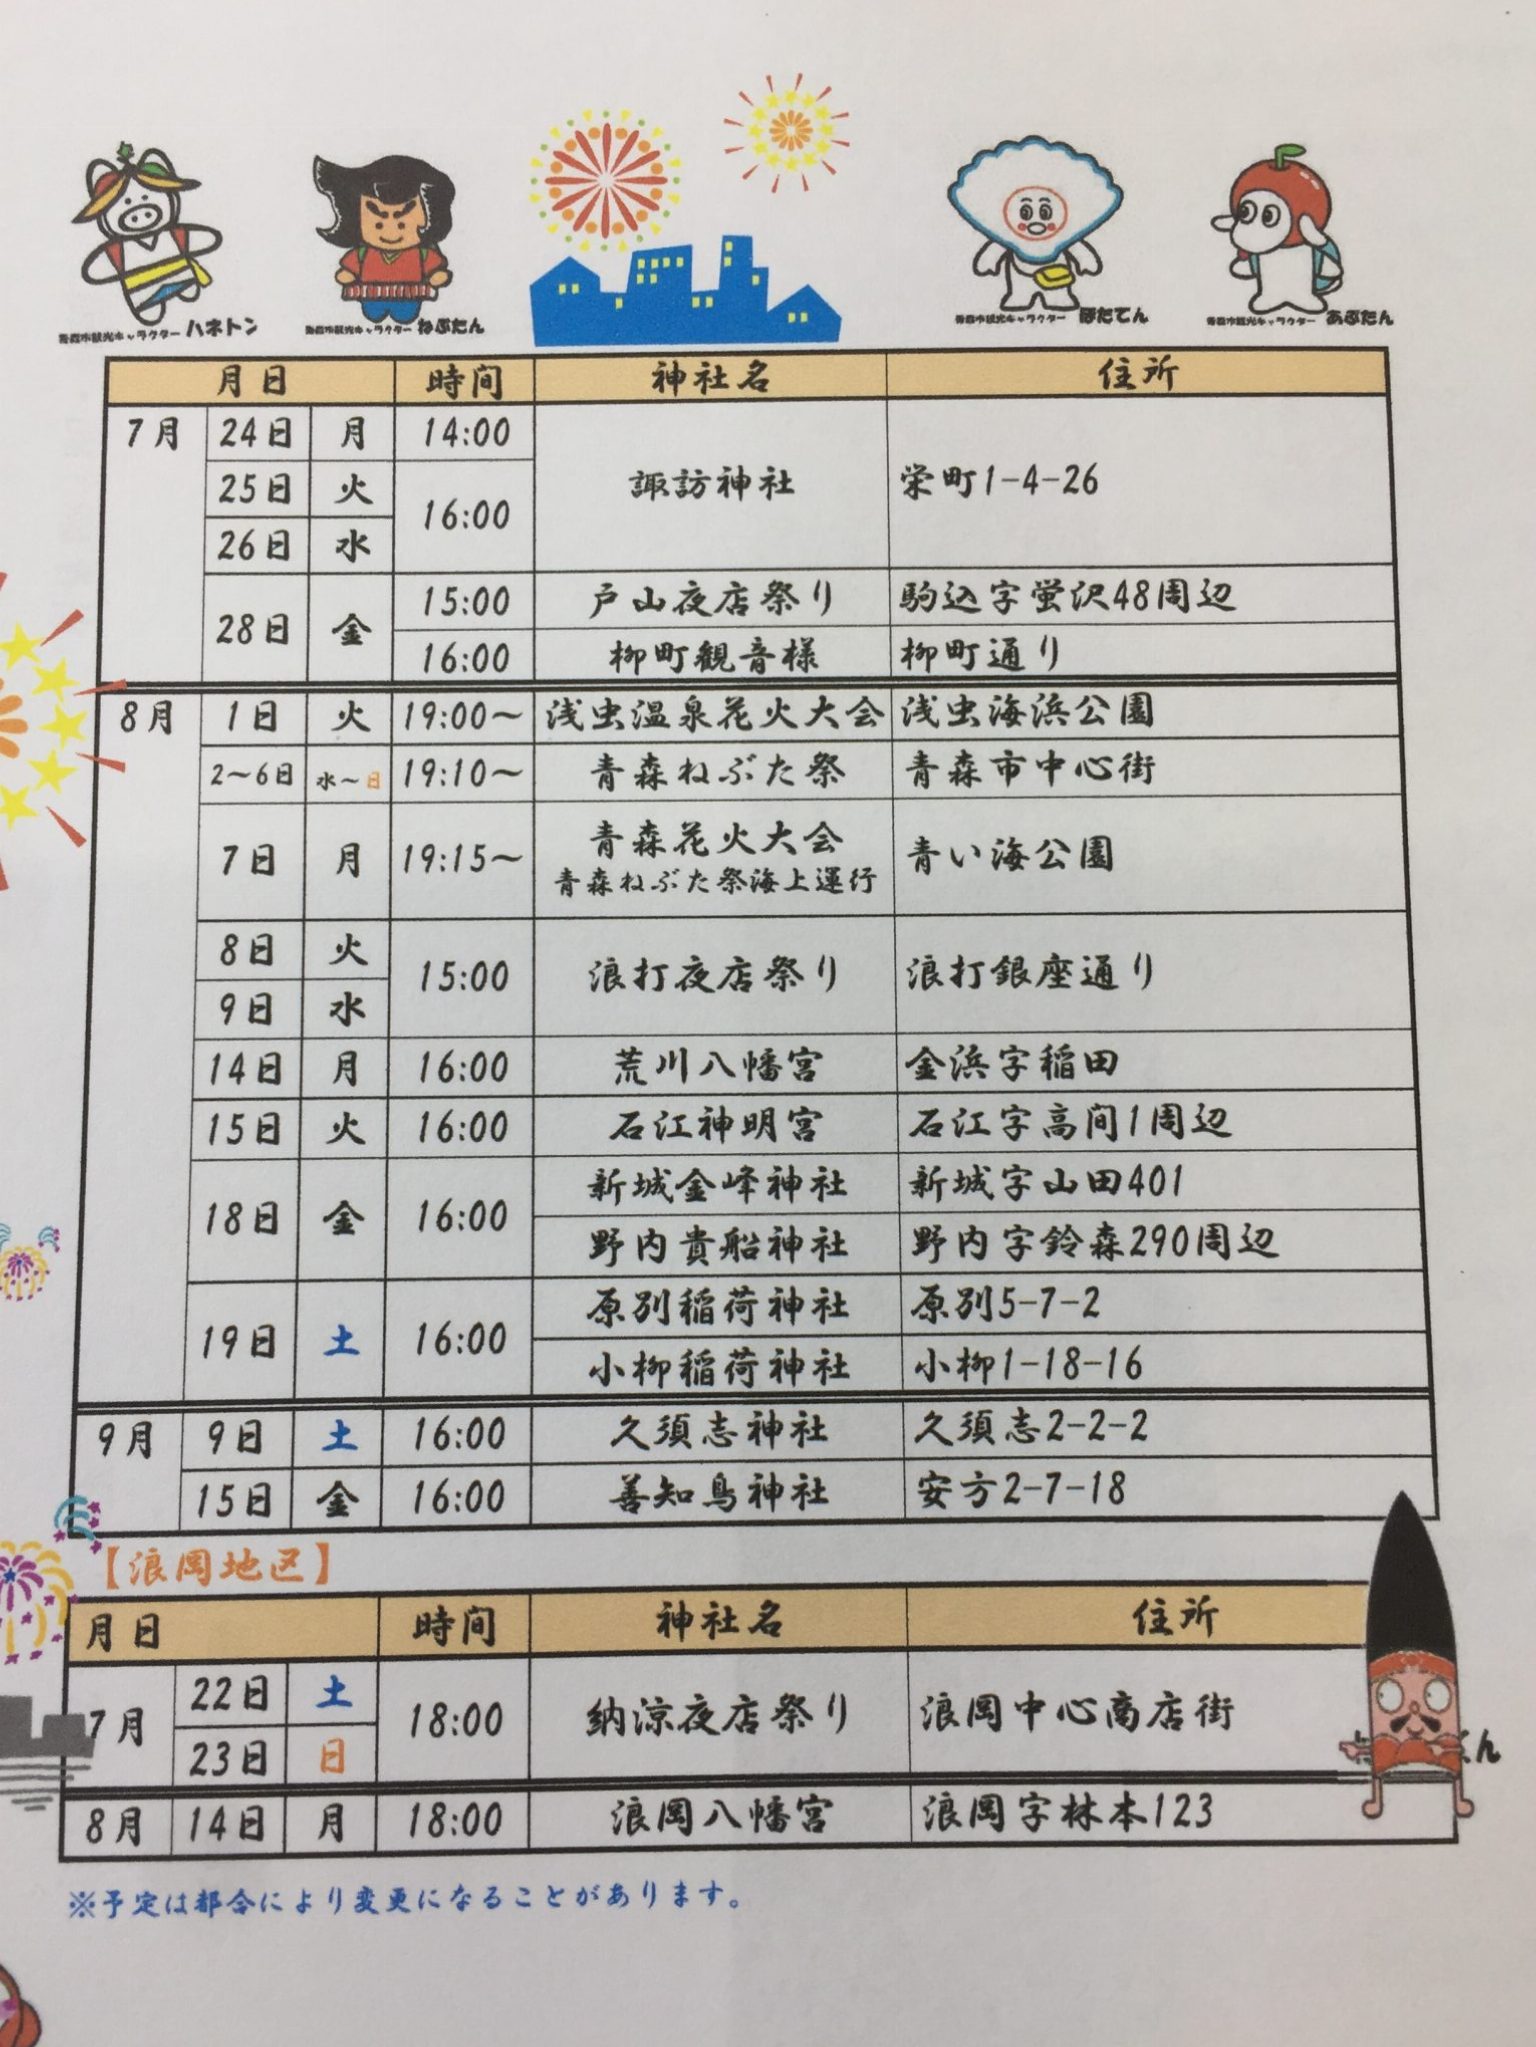 青森市観光キャラクター ハネトン
青森市観光キャラクター ねぶたん
青森市観光キャラクター ほたてん
青森市観光キャラクター あぷたん
月日 時間 神社名 住所
7月 24日 月 14:00 諏訪神社 栄町1-4-26
25日 火 16:00
26日 水
28日 金 15:00 戸山夜店祭り 駒込字蛍沢48周辺
16:00 柳町観音様 柳町通り
8月 1日 火 19:00~ 浅虫温泉花火大会 浅虫海浜公園
2~6日 水~日 19:10~ 青森ねぶた祭 青森市中心街
7日 月 19:15~ 青森花火大会 青い海公園
青森ねぶた祭海上運行
8日 火 15:00 浪打夜店祭り 浪打銀座通り
9日 水
14日 月 16:00 荒川八幡宮 金浜字稲田
15日 火 16:00 石江神明宮 石江字高間1周辺
18日 金 16:00 新城金峰神社 新城字山田401
野内貴船神社 野内字鈴森290周辺
19日 土 16:00 原別稲荷神社 原別5-7-2
小柳稲荷神社 小柳1-18-16
9月 9日 土 16:00 久須志神社 久須志2-2-2
15日 金 16:00 善知鳥神社 安方2-7-18
【浪岡地区】
月日 時間 神社名 住所
7月 22日 土 18:00 納涼夜店祭り 浪岡中心商店街
23日 日
8月 14日 月 18:00 浪岡八幡宮 浪岡字林本123
※予定は都合により変更になることがあります。